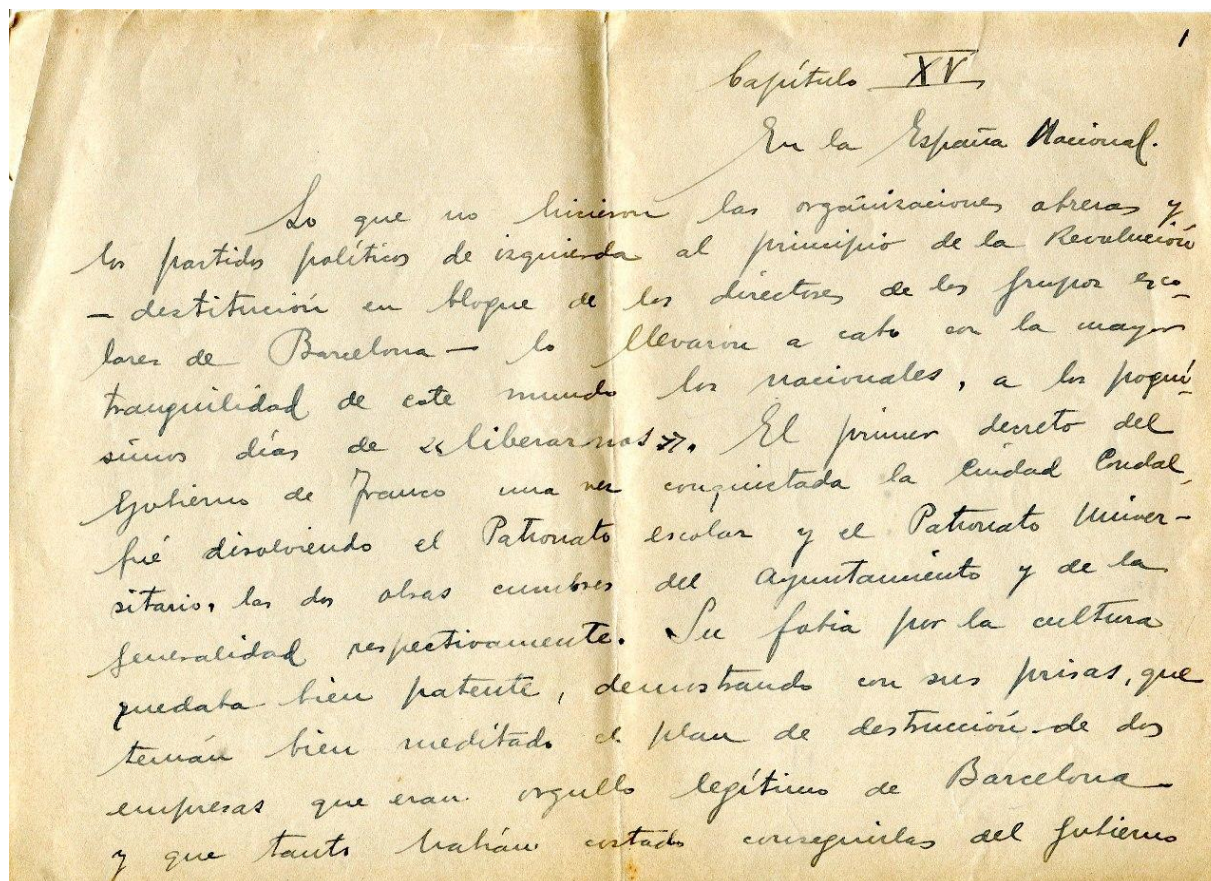 1
Capítulo XV
En la España Nacional.
Lo que no hicieron las organizaciones obreras y
los partidos políticos de izquierda al principio de la Revolución
— destitución en bloque de los directores de los grupos esco-
lares de Barcelona — lo llevaron a cabo con la mayor
tranquilidad de este mundo los nacionales, a los poquí-
simos días de «liberarnos». El primer decreto del
Gobierno de Franco una vez conquistada la Ciudad Condal,
fué disolviendo el Patronato escolar y el Patronato Univer-
sitario, las dos obras cumbres del Ayuntamiento y de la
Generalidad respectivamente. Su fobia por la cultura
quedaba bien patente, demostrando con sus prisas, que
tenían bien meditado el plan de destrucción de dos
empresas que eran orgullo legítimo de Barcelona
y que tanto habían costado conseguirlas del Gobierno